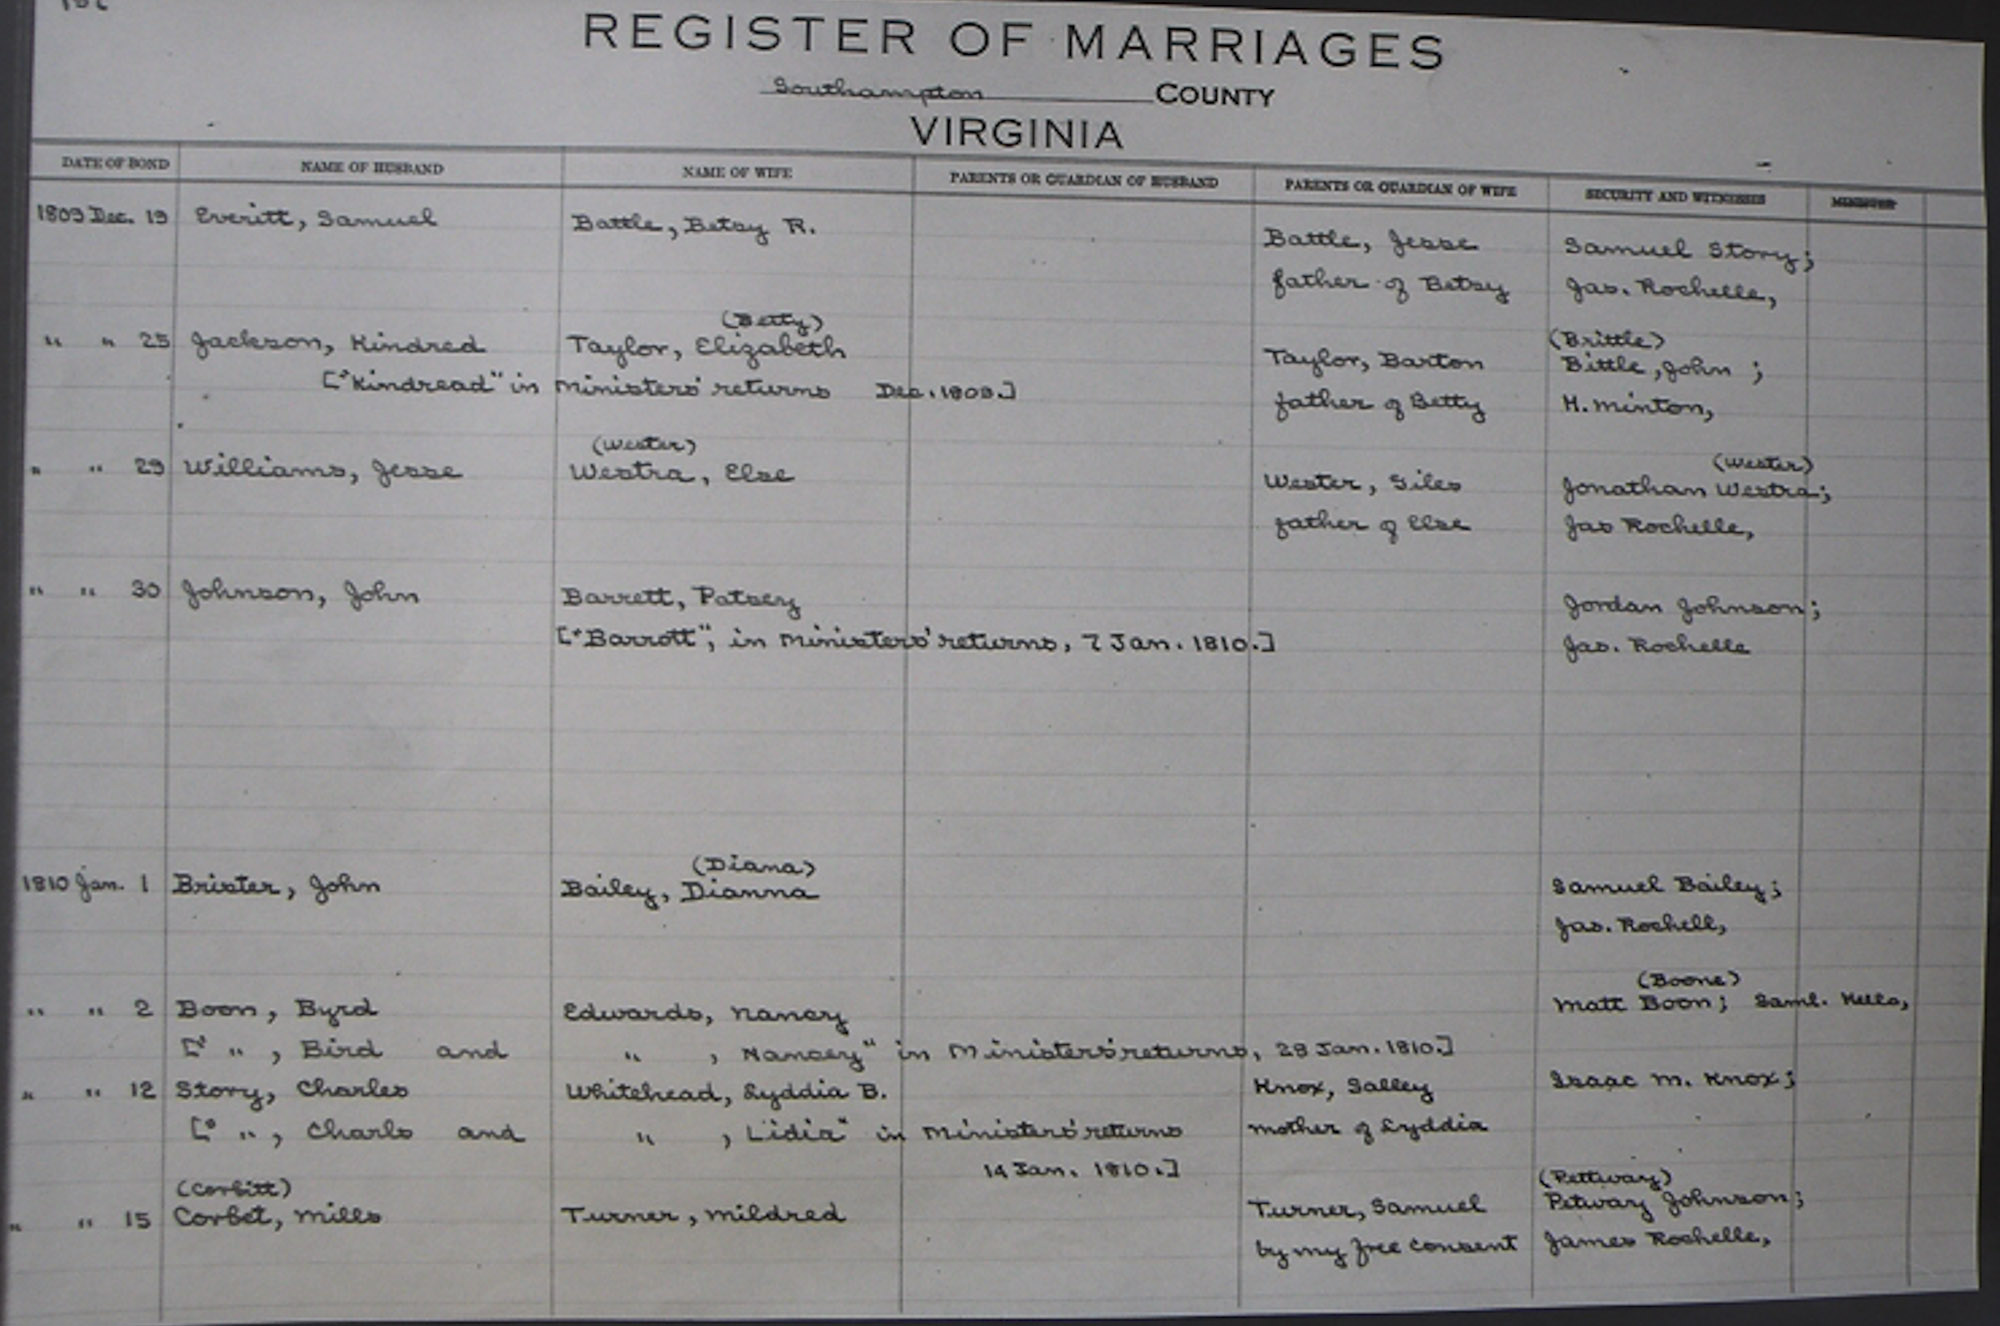 REGISTER OF MARRIAGES
Southampton COUNTY
VIRGINIA
DATE OF BOND NAME OF HUSBAND NAME OF WIFE PARENTS OR GUARDIAN OF HUSBAND PARENTS OR GUARDIAN OF WIFE SECURITY AND WITNESSES MINISTER
1809 Dec. 19 Everitt, Samuel Battle, Betsy R. Battle, Jesse Samuel Story;
father of Betsy Jas. Rochelle,
(Betty) (Brittle)
" " 25 Jackson, Kindred Taylor, Elizabeth Taylor, Barton Bittle, John ;
["Kindread" in Ministers' returns Dec. 1809.] father of Betty H. Minton,
(Wester) (Wester)
" " 29 Williams, Jesse Westra, Else Wester, Giles Jonathan Westra;
father of Else Jas Rochelle,
" " 30 Johnson, John Barrett, Patsey Jordan Johnson;
["Barrott", in Ministers' returns, 7 Jan. 1810.] Jas. Rochelle
(Diana)
1810 Jan. 1 Brister, John Bailey, Dianna Samuel Bailey;
Jas. Rochell,
(Boone)
" " 2 Boon, Byrd Edwards, Nancy Matt Boon; Saml.
[" " , Bird and " , Nancey" in Ministers' returns, 28 Jan. 1810.]
" " 12 Story, Charles Whitehead, Lyddia B. Knox, Salley Isaac M. Knox;
[" " , Charls and " , Lidia" in Ministers' returns mother of Lyddia
14 Jan. 1810.]
(Corbitt) (Pettway)
" " 15 Corbet, Mills Turner, Mildred Turner, Samuel Petway Johnson;
by my free consent James Rochelle,